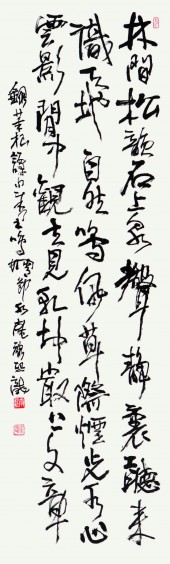 林間松韻石上泉聲靜裏聽來
識天地自然鳴佩草際煙光水心
雲影閒中觀去見乾坤最上文章